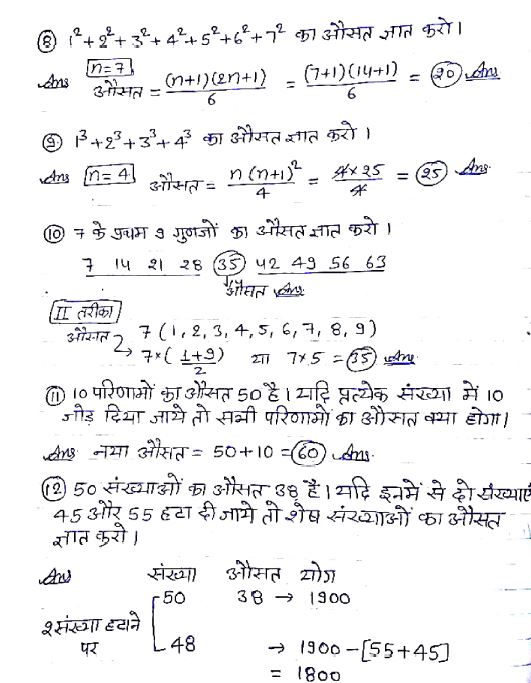 ⑧ 1² + 2² + 3² + 4² + 5² + 6² + 7² का औसत ज्ञात करो।
Ans n=7 औसत = (n+1)(2n+1)/6 = (7+1)(14+1)/6 = 20 Ans
⑨ 1³ + 2³ + 3³ + 4³ का औसत ज्ञात करो।
Ans n=4 औसत = n(n+1)²/4 = 4×25/4 = 25 Ans
⑩ 7 के प्रथम 9 गुणजों का औसत ज्ञात करो।
7 14 21 28 35 42 49 56 63
औसत Ans
II तरीका
औसत 7 (1, 2, 3, 4, 5, 6, 7, 8, 9)
→ 7×(1+9)/2 या 7×5 = 35 Ans
⑪ 10 परिणामों का औसत 50 है। यदि प्रत्येक संख्या में 10
जोड़ दिया जाये तो सभी परिणामों का औसत क्या होगा।
Ans नया औसत = 50+10 = 60 Ans.
⑫ 50 संख्याओं का औसत 38 है। यदि इनमें से दो संख्याएँ
45 और 55 हटा दी जाये तो शेष संख्याओं का औसत
ज्ञात करो।
Ans संख्या औसत योग
50 38 → 1900
2 संख्या हटाने
पर 48 → 1900 - [55+45]
= 1800